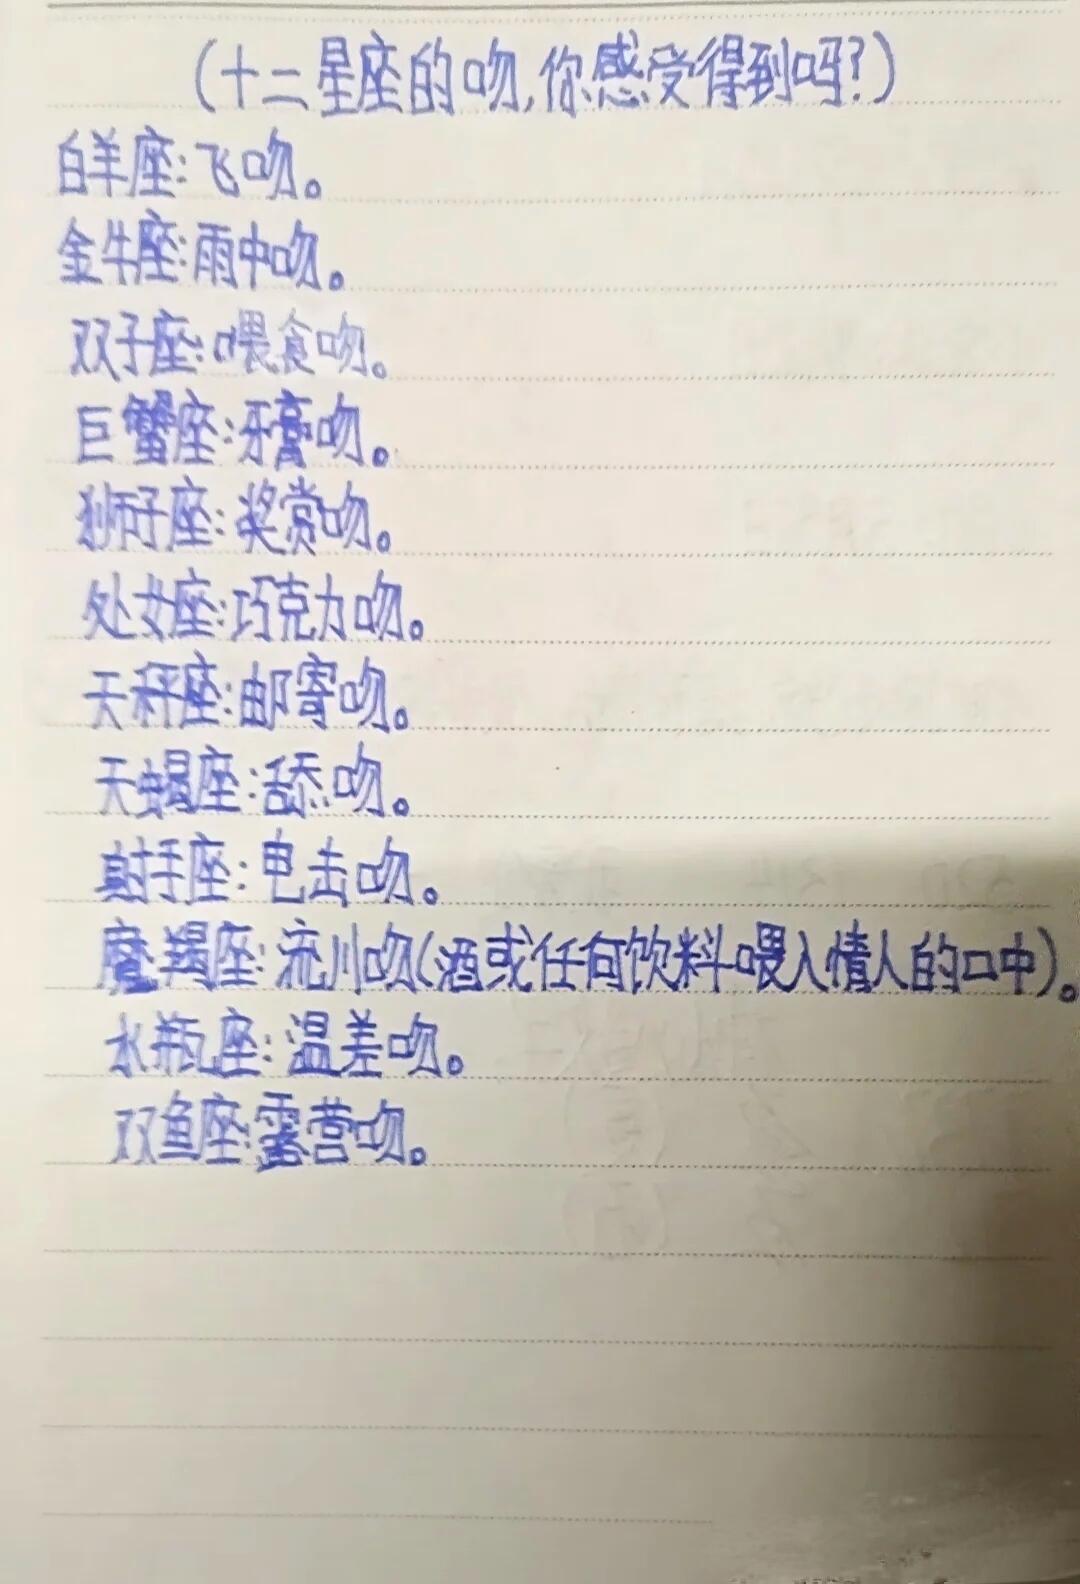 (十二星座的吻,你感受得到吗?)
白羊座:飞吻。
金牛座:雨中吻。
双子座:喂食吻。
巨蟹座:牙膏吻。
狮子座:奖赏吻。
处女座:巧克力吻。
天秤座:邮寄吻。
天蝎座:舔吻。
射手座:电击吻。
魔羯座:流川吻(酒或任何饮料喂入情人的口中)。
水瓶座:温差吻。
双鱼座:露营吻。